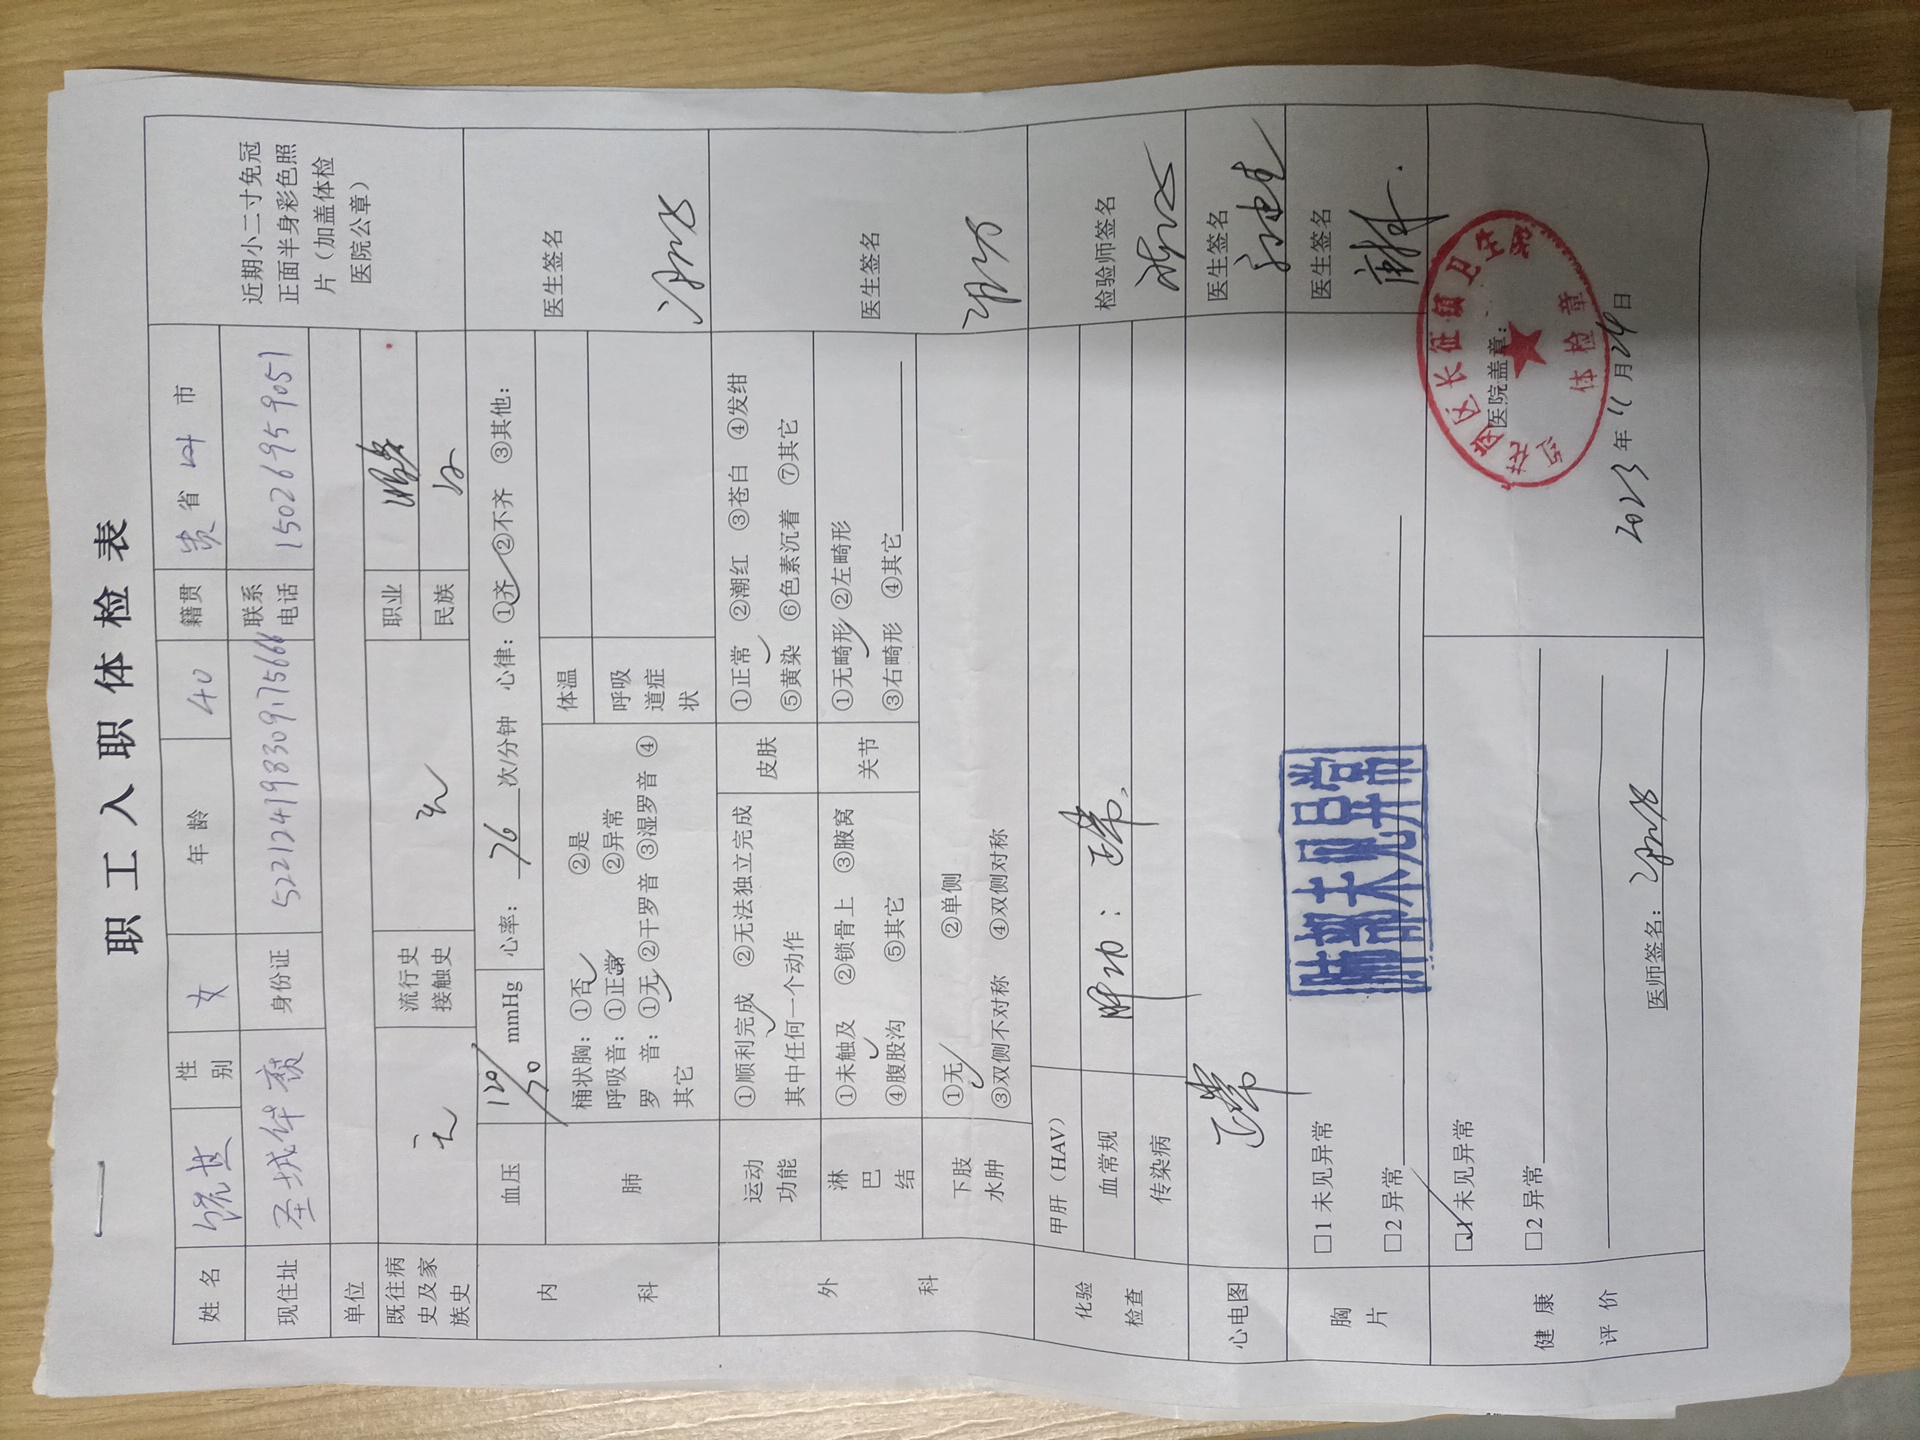 职工入职体检表
姓名 性别 女 年龄 40 籍贯 贵 省 市
近期小二寸免冠
正面半身彩色照
片（加盖体检
医院公章）
现住址 圣城华 身份证 522124198309175666 联系电话 15026959051
单位
既往病史及家族史 无 流行史接触史 无 职业
民族 汉
内科
血压 120/70 mmHg 心率： 76 次/分钟 心律：①齐 ②不齐 ③其他：
医生签名
肺
桶状胸：①否 ②是
呼吸音：①正常 ②异常
罗 音：①无 ②干罗音 ③湿罗音 ④
其它
体温
呼吸道症状
外科
运动功能
①顺利完成 ②无法独立完成
其中任何一个动作
皮肤
①正常 ②潮红 ③苍白 ④发绀
⑤黄染 ⑥色素沉着 ⑦其它
医生签名
淋巴结
①未触及 ②锁骨上 ③腋窝
④腹股沟 ⑤其它
关节
①无畸形 ②左畸形
③右畸形 ④其它
下肢水肿
①无 ②单侧
③双侧不对称 ④双侧对称
化验检查
甲肝（HAV）
血常规
传染病
肝功：正常
检验师签名
心电图 正常 医生签名
胸片
□1 未见异常
□2 异常
肺部未见异常
医生签名
健康评价
□1 未见异常
□2 异常
医师签名：
医院盖章：
区长征镇卫
体检章
2023年11月24日